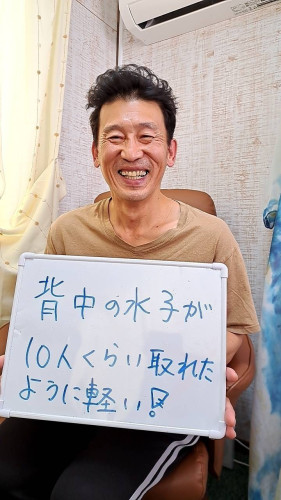 背中の水子が
10人くらい取れた
ように軽い!